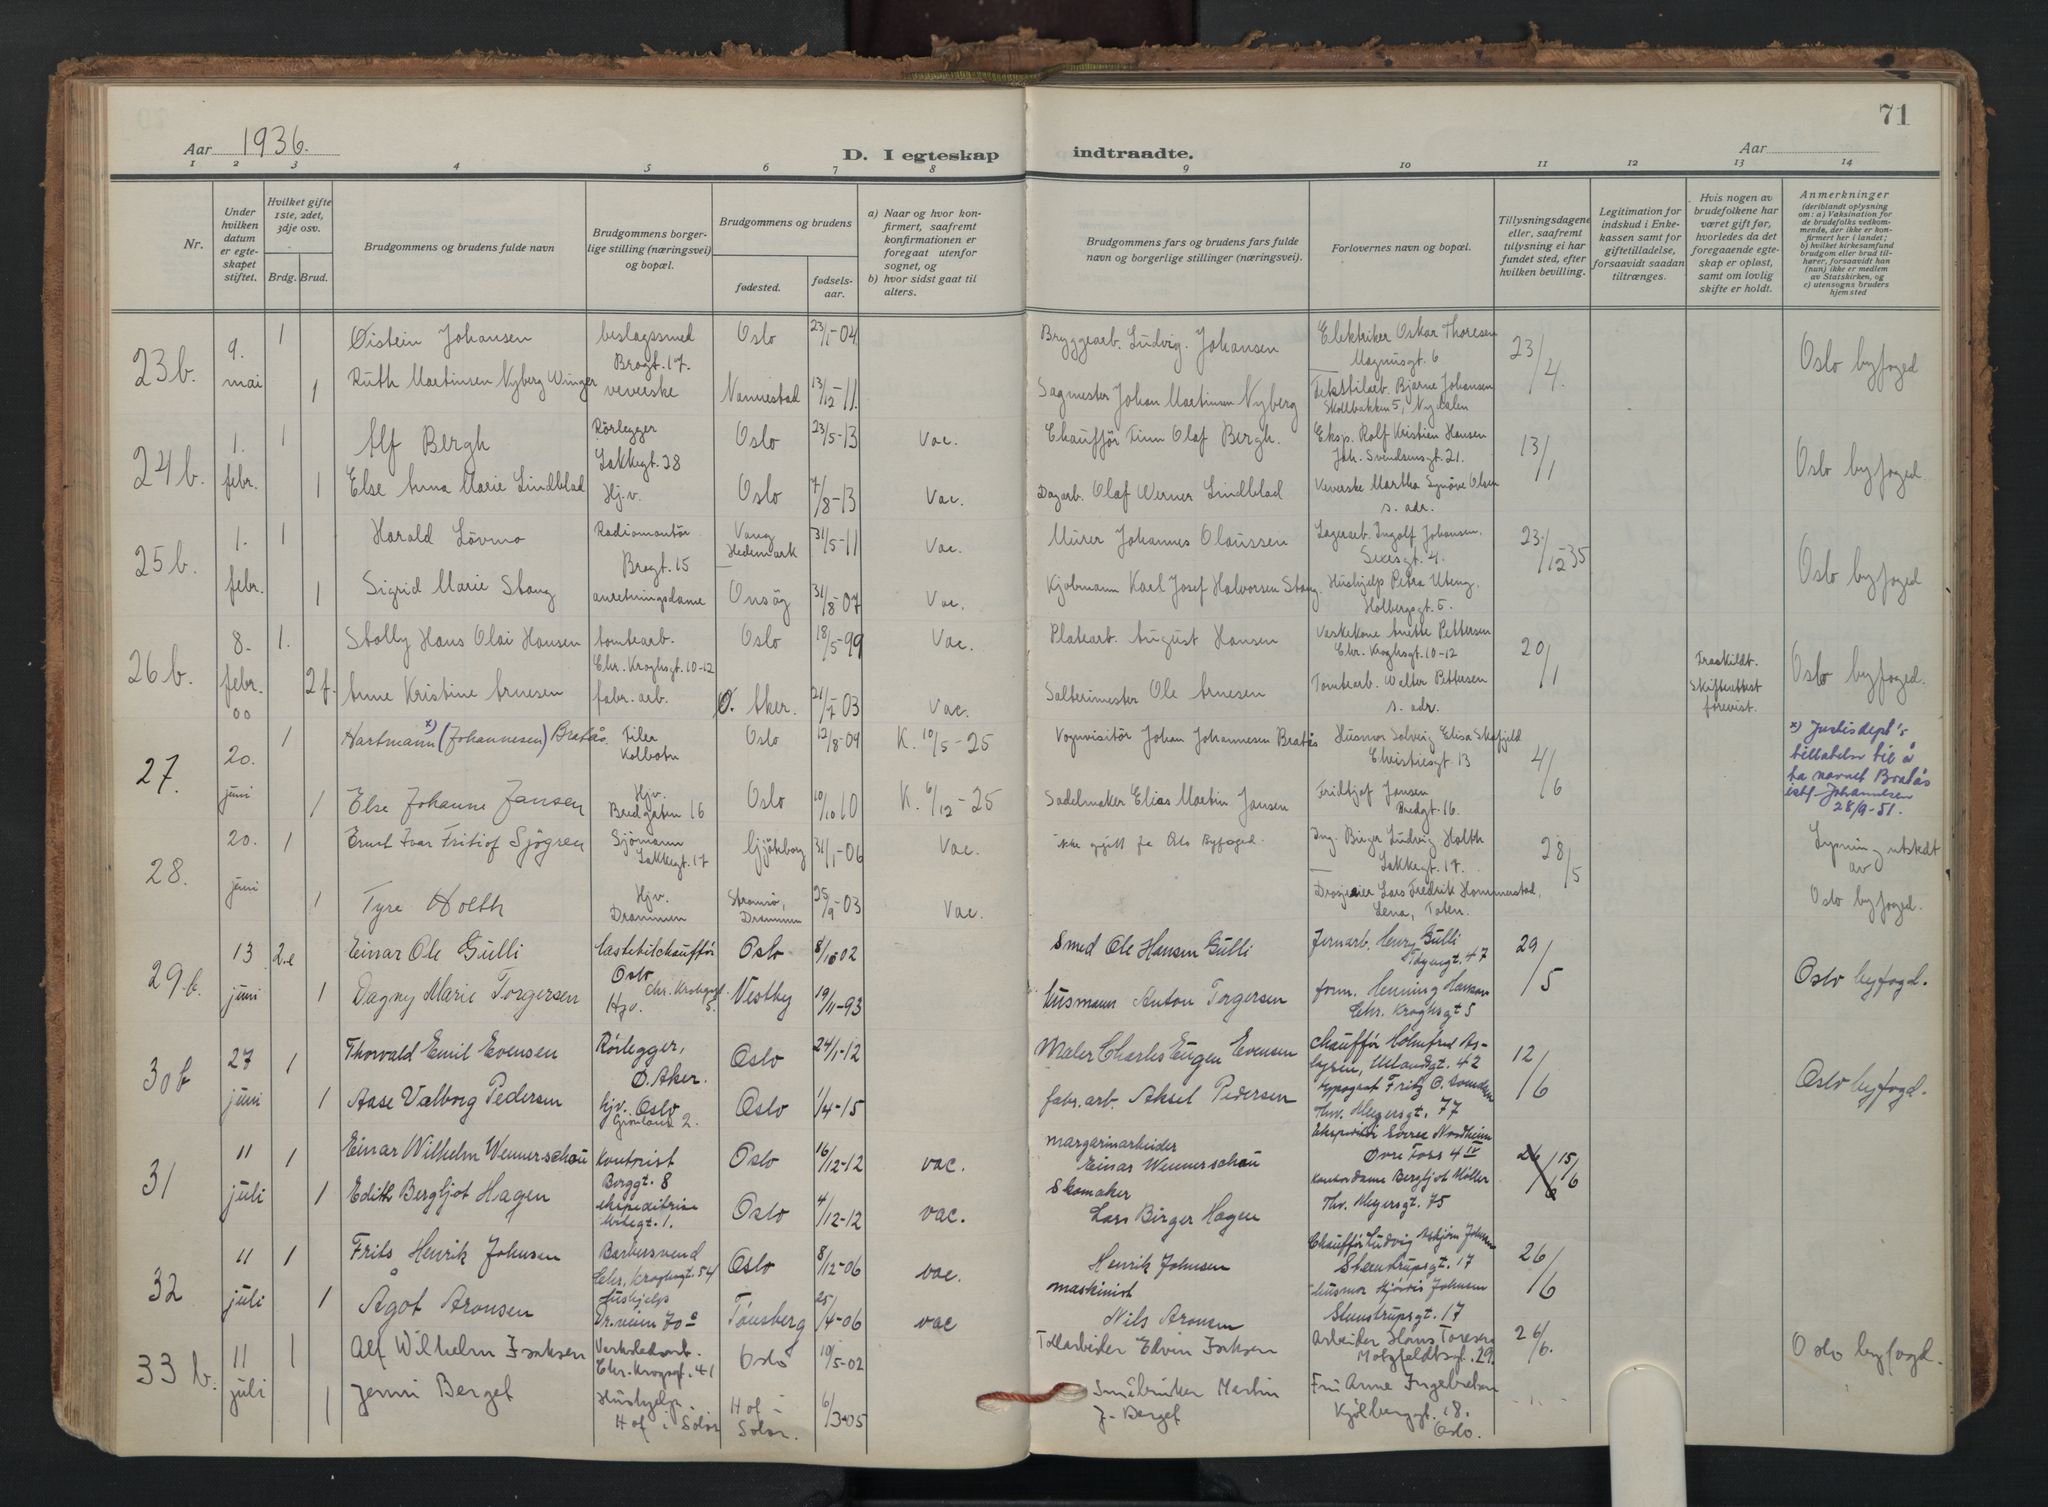 71
Aar 1936.
D. I egteskap indtraadte.
Aar
1 2 3 4 5 6 7 8 9 10 11 12 13 14
Nr.
Under hvilken datum er egteskapet stiftet.
Hvilket gifte 1ste, 2det, 3dje osv.
Brdg. Brud.
Brudgommens og brudens fulde navn
Brudgommens borgerlige stilling (næringsvei) og bopæl.
Brudgommens og brudens
fødested.
fødselsaar.
a) Naar og hvor konfirmert, saafremt konfirmationen er foregaat utenfor sognet, og
b) hvor sidst gaat til alters.
Brudgommens fars og brudens fars fulde navn og borgerlige stillinger (næringsvei).
Forlovernes navn og bopæl.
Tillysningsdagene eller, saafremt tillysning ei har fundet sted, efter hvilken bevilling.
Legitimation for indskud i Enkekassen samt for giftetilladelse, forsaavidt saadan tiltrænges.
Hvis nogen av brudefolkene har været gift før, hvorledes da det foregaaende egteskap er opløst, samt om lovlig skifte er holdt.
Anmerkninger
(deriblandt oplysning om: a) Vaksination for de brudefolks vedkommende, der ikke er konfirmert her i landet; b) hvilket kirkesamfund brudgom eller brud tilhører, forsaavidt han (nun) ikke er medlem av Statskirken, og c) utensogns bruders hjemsted
23b. 9. mai 1 Øistein Johansen beslagssmed Brogt. 17. Oslo 23/1-04 Bryggearb. Ludvig. Johansen Elektriker Oskar Thoresen Magnusgt. 6 23/4. Oslo byfoged
1 Ruth Martinsen Nyberg Winger veverske Nannestad 13/12-11. Sagmester Johan Martinsen Nyberg Tekstilarb. Bjarne Johansen Skollbakken 5, Nydalen
24b. 1. febr. 1 Alf Bergh Rørlegger Lakkegt. 28 Oslo 23/5-13 Vac. Chauffør Finn Olaf Bergh. Eksp. Rolf Kristian Hansen Joh. Svendsensgt. 21. 13/1 Oslo byfoged.
1 Else Anna Marie Lindblad Hj.v. Oslo 7/8-13 Vac. Dagarb. Olaf Werner Lindblad Veverske Martha Synøve Olsen s. adr.
25b. 1. febr. 1 Harald Løvmo Radiomontør Brogt. 15 Vang Hedemark 31/5-11 Vac. Murer Johannes Olaussen Lagerarb. Ingolf Johansen. 4. 23/12-35 Oslo byfoged
1 Sigrid Marie Stang anretningsdame Onsøy 31/8-07 Vac. Kjøbmann Karl Josef Halvorsen Stang. Hushjelp Petra Uteng. Holbergsgt. 5.
26b. 8. febr. 1. Stolly Hans Olai Hansen tomtearb. Chr. Kroghsgt. 10-12 Oslo 18/5-99 Vac. Platearb. August Hansen Vaskekone Anette Pettersen Chr. Kroghsgt. 10-12 20/1 Fraskildt. Skifteattest forevist. Oslo byfoged.
2 f. Anne Kristine Arnesen fabr. arb. Ø. Aker. 21/7-03 Vac. Salterimester Ole Arnesen Tomtearb. Walter Pettersen s. adr.
27. 20. juni 1 Hartmann x) (Johannesen) Bratås Filer Kolbotn Oslo 12/8-09 K. 10/5-25 Vognvisitør Johan Johannesen Bratås Husmor Solveig Elisa Christiesgt 13 4/6 x) Justisdept's tillatelse til å ta navnet Bratås istf. Johannesen 28/9-51.
1 Else Johanne Jansen Hjv. Bredgaten 16 Oslo 10/10 10 K. 6/12-25 Sadelmaker Elias Martin Jansen Fridtjof Jansen Bredgt. 16.
28. 20. juni 1 Ernst Ivar Fritiof Sjögren Sjømann Lakkegt. 17 Gjöteborg 31/1-06 Vac. ikke opgitt fra Oslo Byfoged. Ing. Birger Ludvig Holth Lakkegt. 17. 28/5 Lysning utstedt av Oslo byfoged.
1 Tyra Holth Hjv. Drammen Strømsø, Drammen 25/9-03 Vac. Drosjeeier Lars Fredrik Hammerstad, Lena, Toten.
29.b. 13 juni 2.e Einar Ole Gulli lastebilchauffør Oslo Chr. Kroghsgt. 5. Oslo 8/10 02 Smed Ole Hansen Gulli Jernarb. Henry Gulli 47 29/5 Oslo byfogd.
1 Dagny Marie Torgersen Hjv. Vestby 19/11-93 husmann Anton Torgersen form. Henning Hansen Chr. Kroghsgt 5
30b 27 juni 1 Thorvald Emil Evensen Rørlegger, Ø. Aker. Oslo 24/1-12 Maler Charles Eugen Evensen chauffør Holmfred Aslaksen, Uelandsgt. 42 12/6 Oslo byfogd.
1 Aase Valborg Pedersen hjv. Oslo Grønland 2. Oslo 1/4-15 fabr. arb. Aksel Pedersen typograf Fritz O. Svendsen Thv. Meyersgt. 77
31 11 juli 1 Einar Wilhelm Wennerschou kontorist Berggt. 8 Oslo 16/12-12 vac. margarinarbeider Einar Wennerschou Ekspeditør Sverre Nordheim Øvre Foss 4 IV 15/6
1 Edith Bergljot Hagen ekspeditrise 1. Oslo 4/12-12 vac. Skomaker Lars Birger Hagen kontordame Bergljot Møller Thv. Meyersgt. 75
32 11 juli 1 Frits Henrik Johnsen Barbersvend Chr. Kroghsgt. 54 Oslo 8/12-06 vac. Henrik Johnsen maskinist Chauffør Ludvig Asbjørn Johnsen Steenstrupsgt. 17 26/6
1 Ågot Aronsen Hushjelp 70 Tønsberg 25/4-06 vac Nils Aronsen husmor Hjørdis Johnsen Stenstrupsgt. 17
33 b. 11 juli 1 Alf Wilhelm Isaksen Verkstedarb. Chr. Krogsgt. 41 Oslo 19/5-02 Tollarbeider Edvin Isaksen Arbeider Hans Toresen Motzfeldtsgt. 29. 26/6. Oslo byfogd.
1 Jenni Berget Hushjelp - Hof i Solør Hof - Solør. 6/3-05 Småbruker Martin J. Berget Fru Anne Ingebretsen Kjølberggt. 18. Oslo. - " -